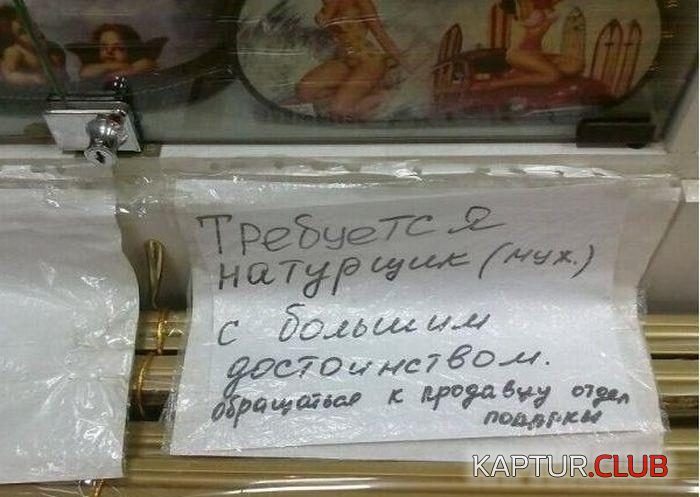 Требуется
натурщик (муж.)
с большим
достоинством.
обращаться к продавцу отдел
подарки
KAPTUR.CLUB